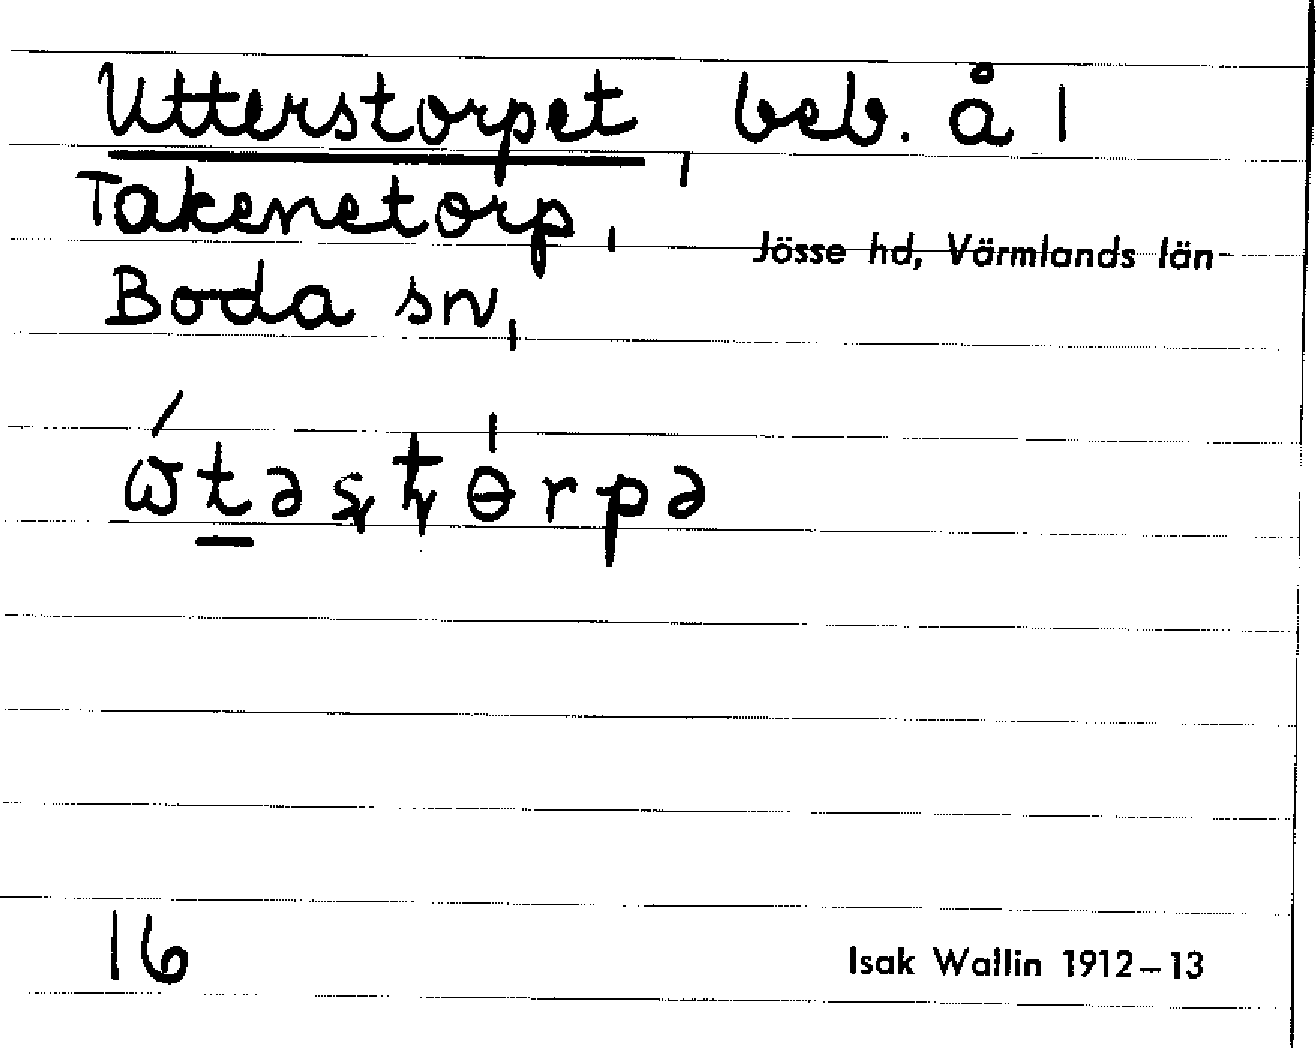 Utterstorpet, beb. å 1
Takenetorp,
Jösse hd, Värmlands län
Boda sn,
16
Isak Wallin 1912–13